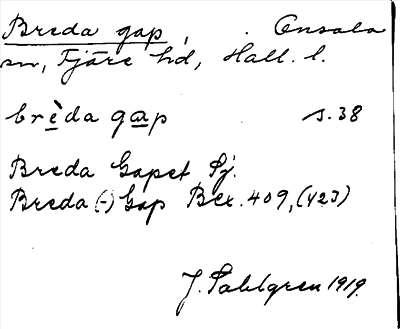 Breda gap, Onsala
sn, Fjäre hd, Hall. l.
brèda gap s. 38
Breda Gapet Sj.
Breda (-) Gap Bex. 409, (423)
J. Sahlgren 1919.